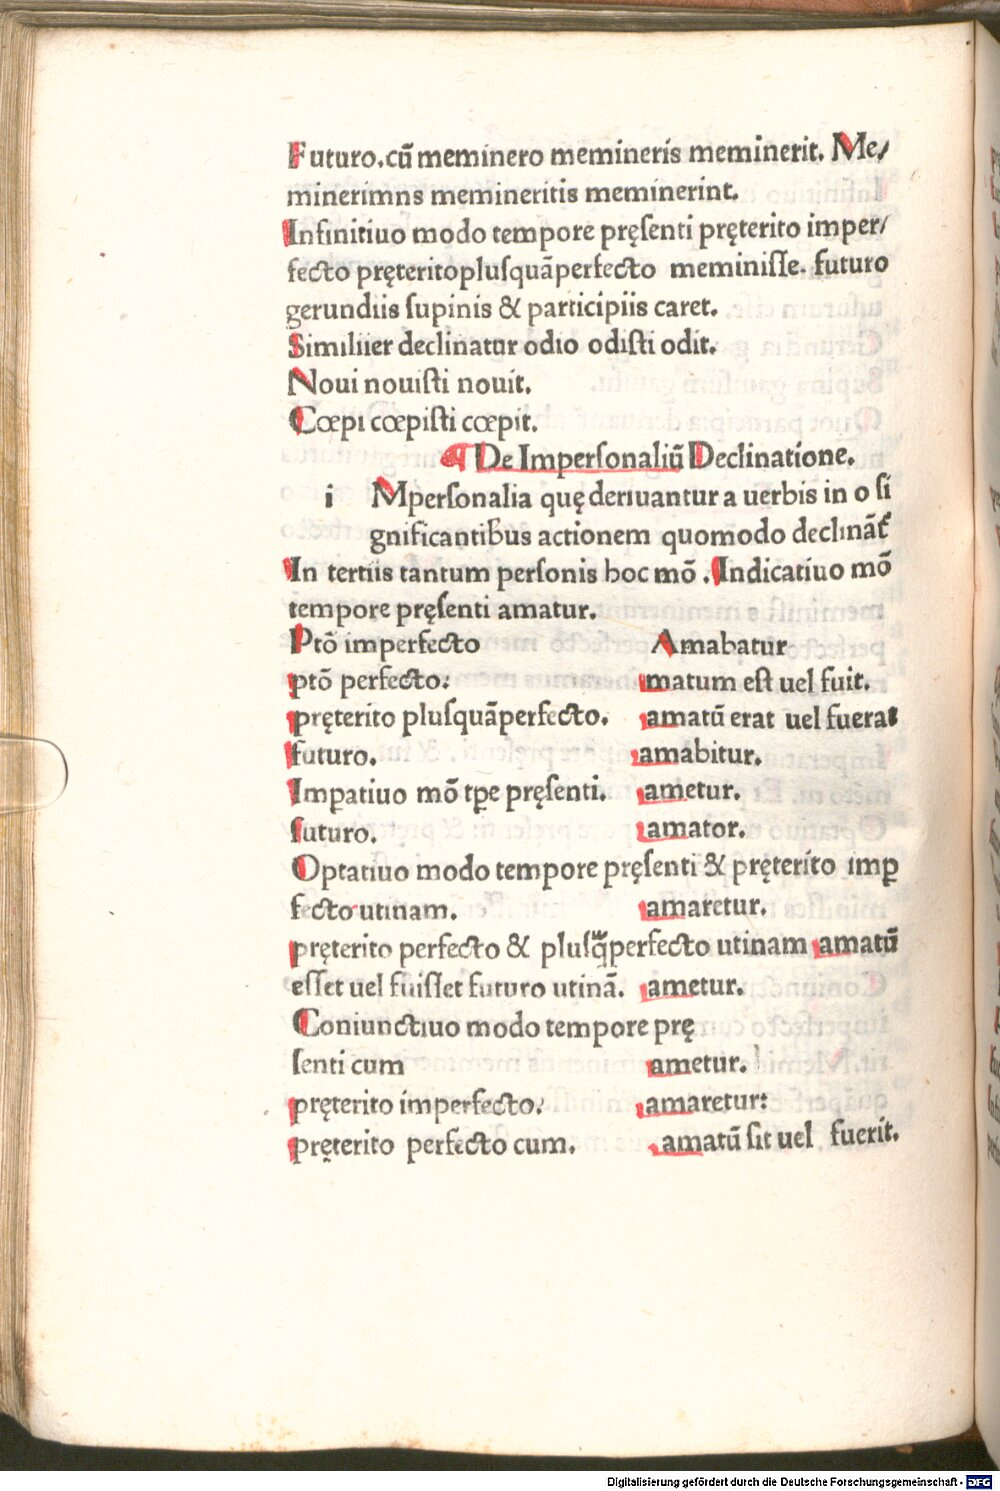 Futuro.cū meminero memineris meminerit. Me/
minerimns memineritis meminerint.
Infinitiuo modo tempore pręſenti pręterito imper/
fecto pręteritopluſquāperfecto meminiſſe. futuro
gerundiis ſupinis & participiis caret.
Similiter declinatur odio odiſti odit.
Noui nouiſti nouit.
Cœpi cœpiſti cœpit.
¶ De Imperſonaliū Declinatione.
i Mperſonalia quę deriuantur a uerbis in o ſi
gnificantibus actionem quomodo declināt̄
In tertiis tantum perſonis hoc mō. Indicatiuo mō
tempore pręſenti amatur.
Ptō imperfecto Amabatur
ptō perfecto: matum eſt uel fuit.
pręterito pluſquāperfecto. amatū erat uel fuerat
futuro. amabitur.
Imꝑatiuo mō tꝑe pręſenti. ametur.
futuro. amator.
Optatiuo modo tempore pręſenti & pręterito imꝑ
fecto utinam. amaretur.
pręterito perfecto & pluſq̄perfecto utinam amatū
eſſet uel fuiſſet futuro utinā. ametur.
Coniunctiuo modo tempore prę
ſenti cum ametur.
pręterito imperfecto: amaretur:
pręterito perfecto cum. amatū ſit uel fuerit.
Digitalisierung gefördert durch die Deutsche Forschungsgemeinschaft - DFG